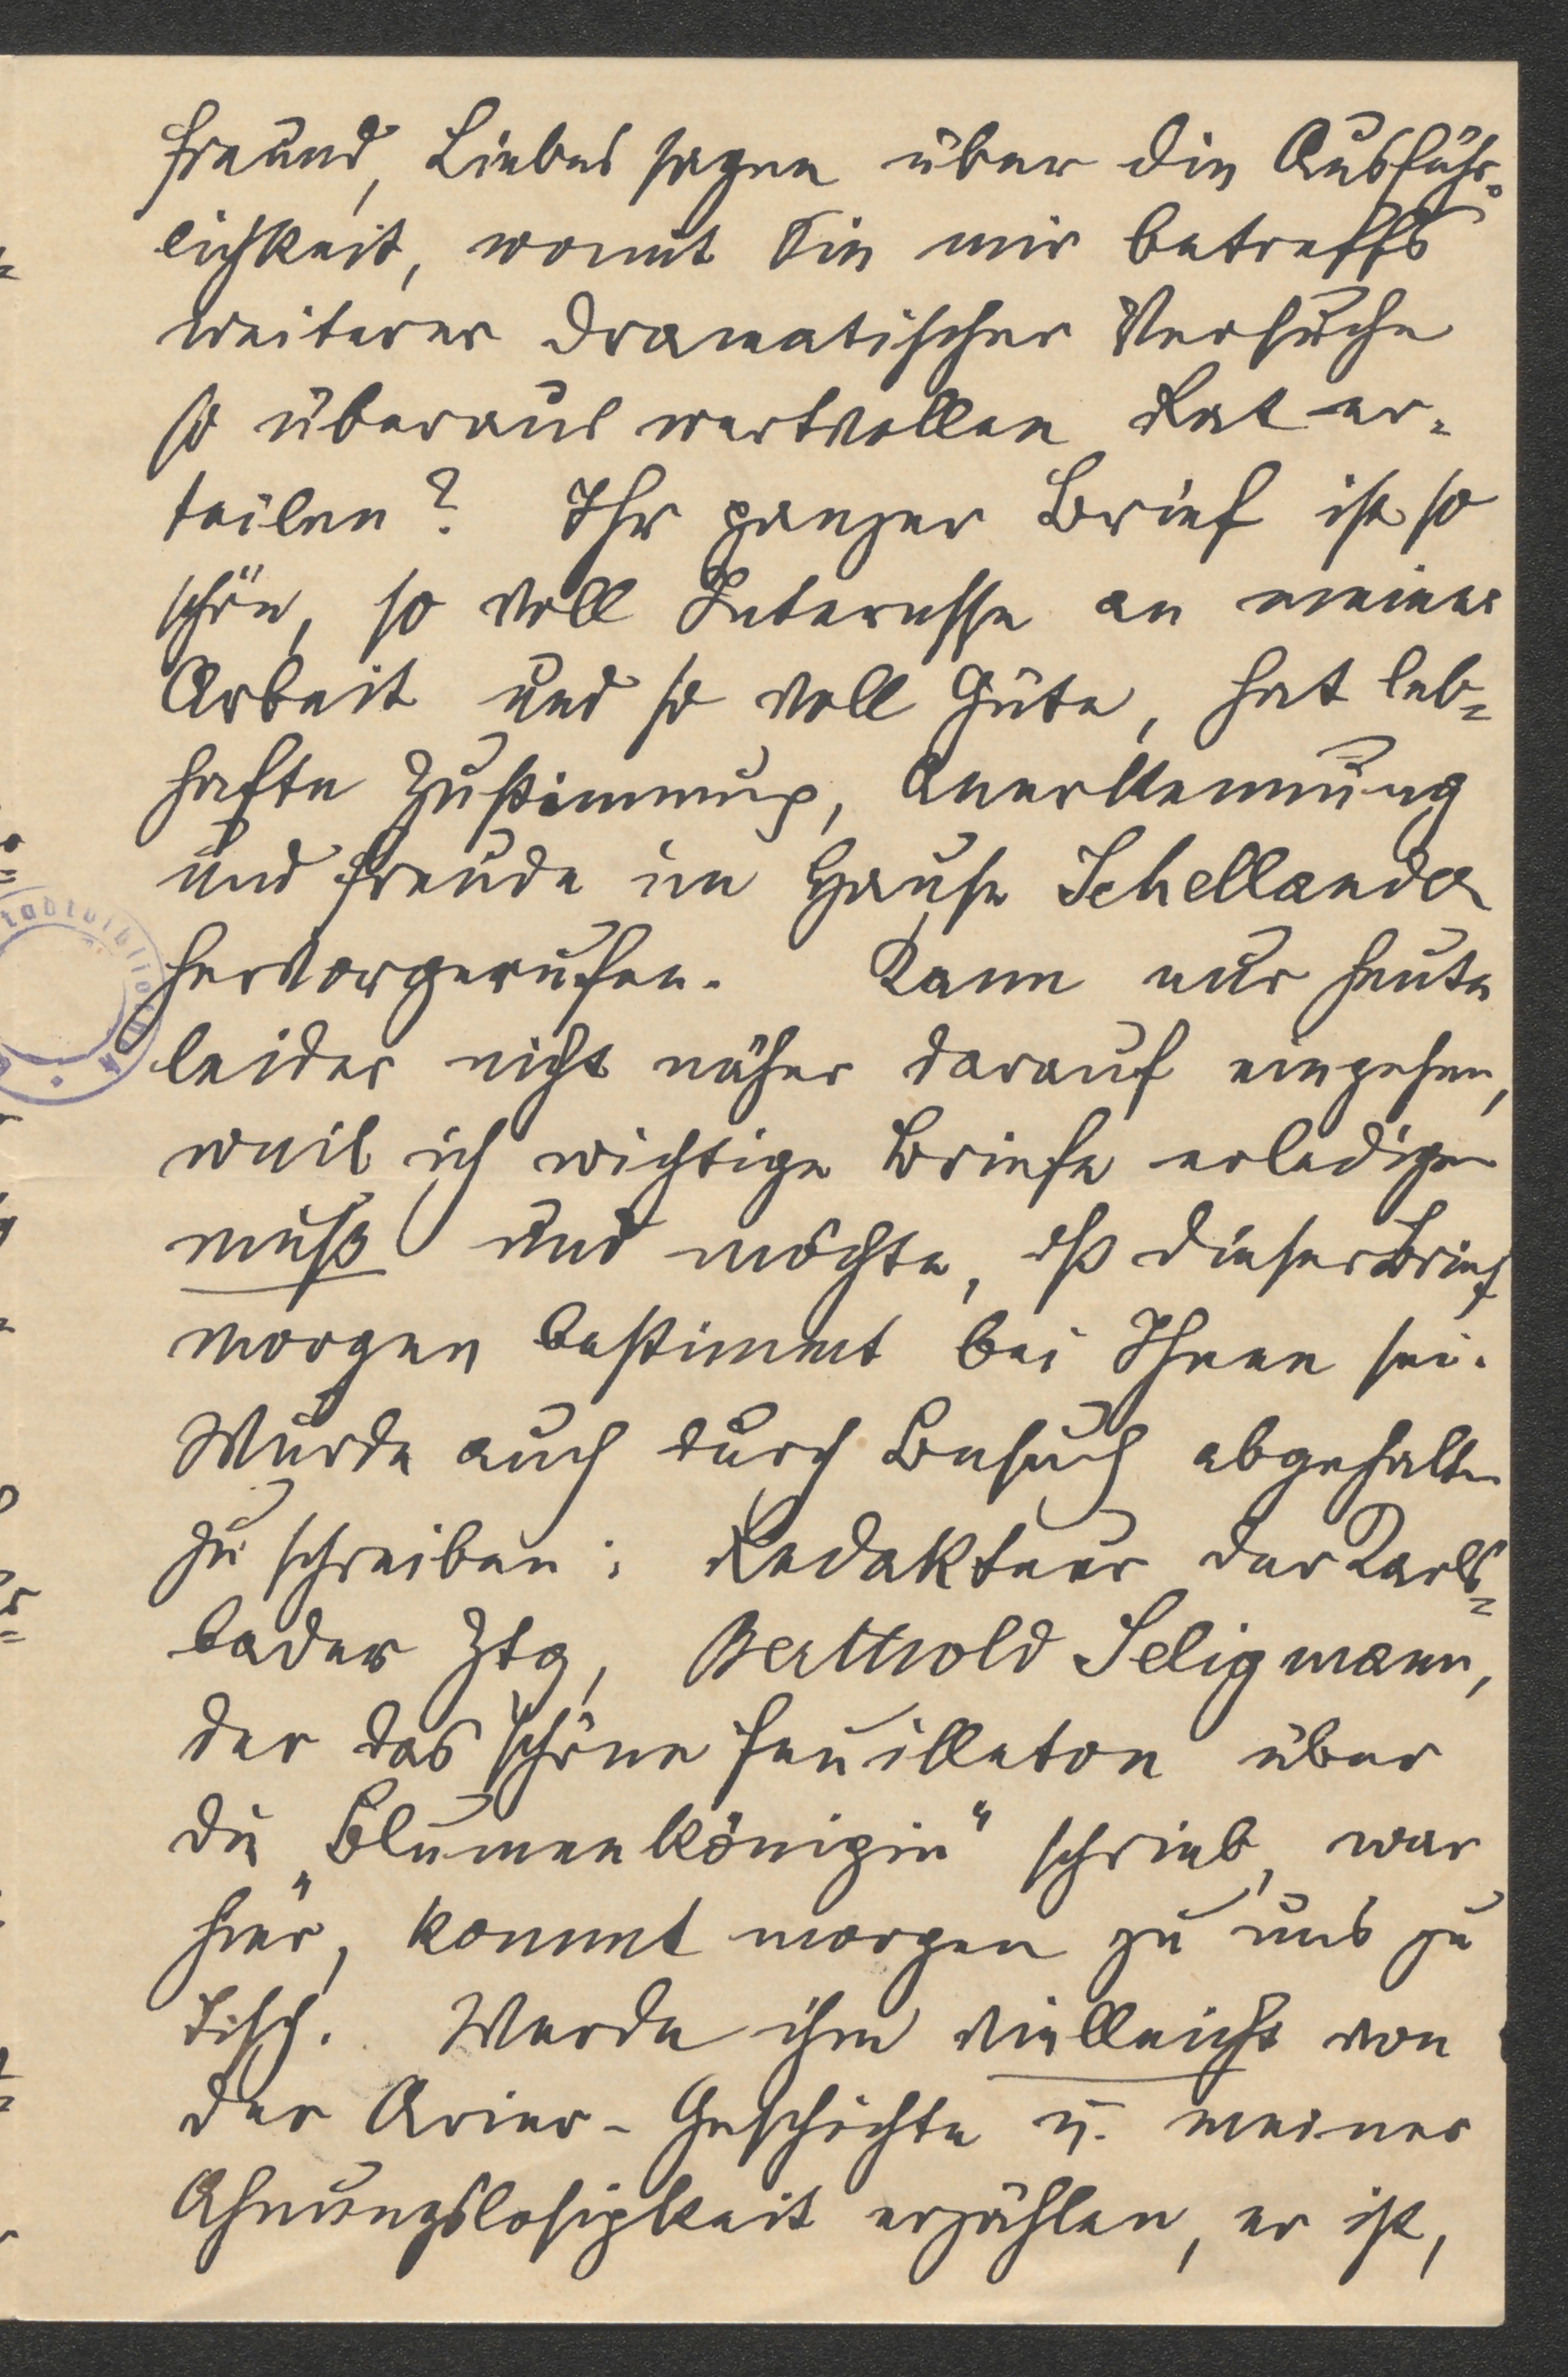 Freund, Liebes sagen über die Ausführ-
lichkeit, womit Sie mir betreffs
weiterer dramatischer Versuche
so überaus wertvollen Rat er-
teilen? Ihr ganzer Brief ist so
schön, so voll Interesse an meiner
Arbeit und so voll Güte, hat leb-
hafte Zustimmung, Anerkennung
und Freude im Hause Schellander
hervorgerufen. Kann nur heute
leider nicht näher darauf eingehen,
weil ich wichtige Briefe erledigen
muß und möchte, dß dieser Brief
morgen bestimmt bei Ihnen sei.
Wurde auch durch Besuch abgehalten
zu schreiben: Redakteur der Karls-
bader Ztg, Berthold Seligmann,
der das schöne Feuilleton über
die „Blumenkönigin" schrieb, war
hier, kommt morgen zu uns zu
Tisch. Werde ihm vielleicht von
der Arier-Geschichte u. meiner
Ahnungslosigkeit erzählen, er ist,